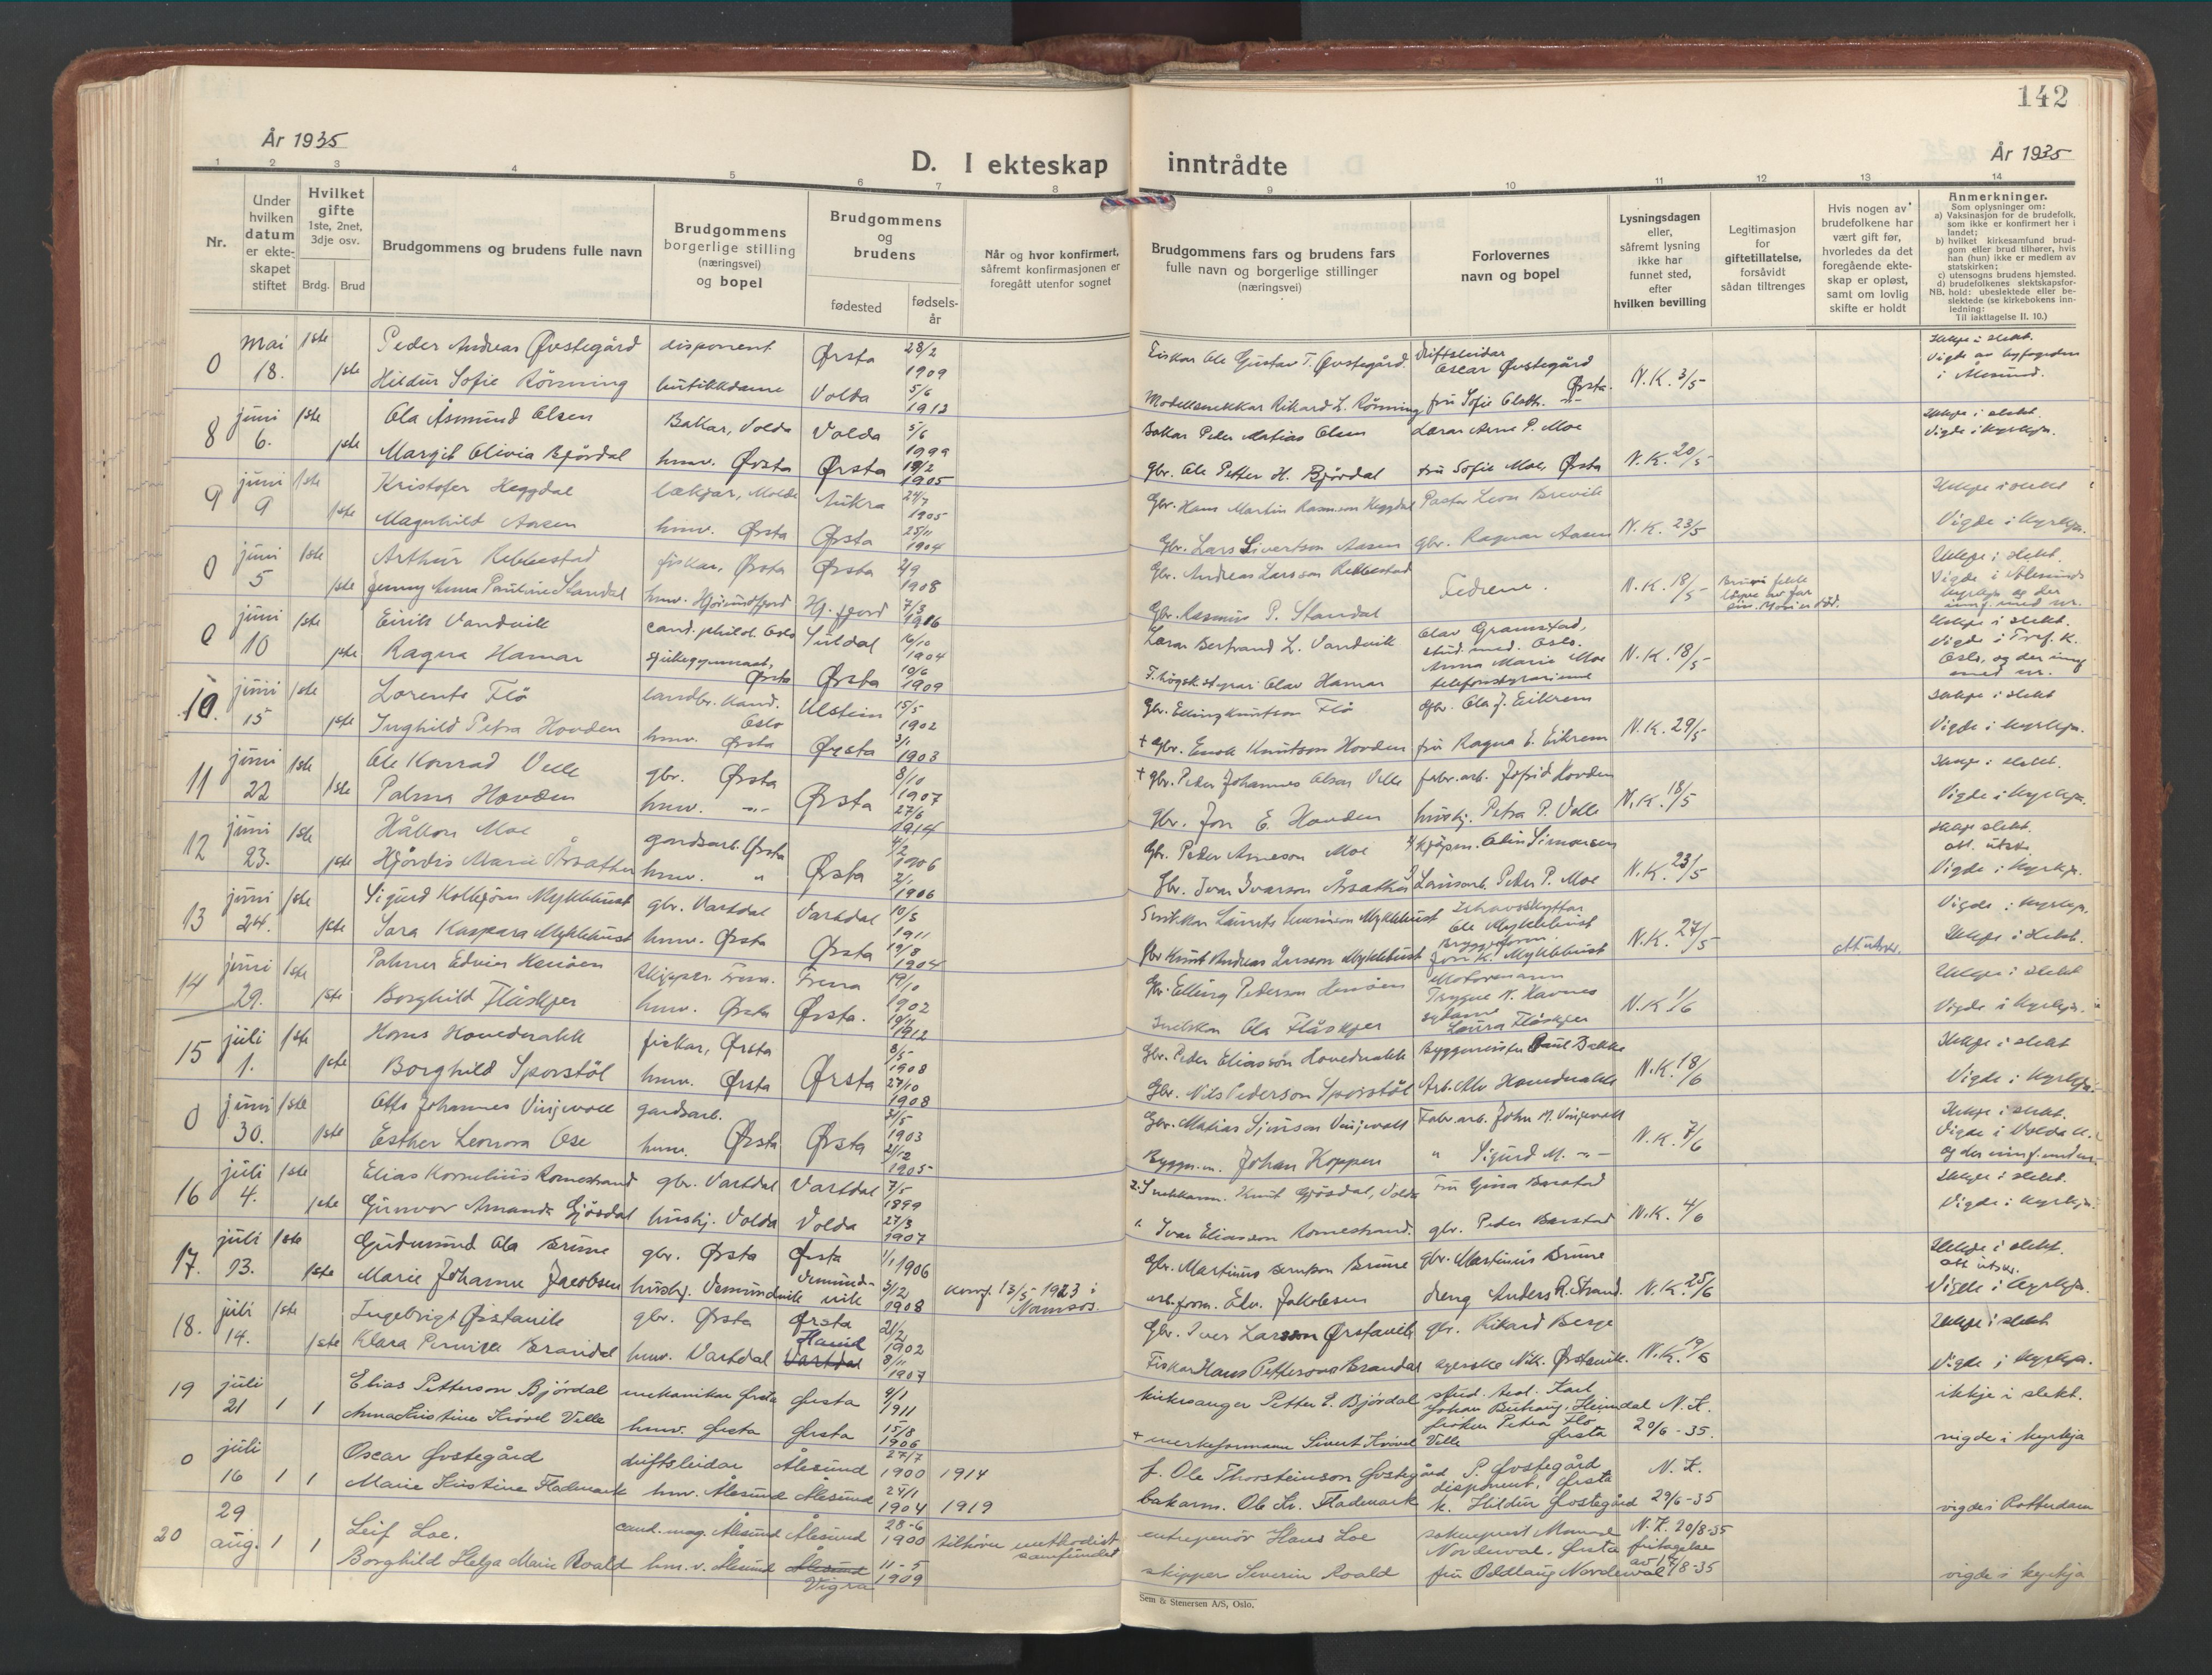 142
År 1935
År 1935
D. I ekteskap inntrådte
1 2 3 4 5 6 7 8 9 10 11 12 13 14
Nr.
Under hvilken datum er ekteskapet stiftet
Hvilket gifte 1ste, 2net, 3dje osv.
Brdg. Brud
Brudgommens og brudens fulle navn
Brudgommens borgerlige stilling (næringsvei) og bopel
Brudgommens og brudens
fødested
fødselsår
Når og hvor konfirmert, såfremt konfirmasjonen er foregått utenfor sognet
Brudgommens fars og brudens fars fulle navn og borgerlige stillinger (næringsvei)
Forlovernes navn og bopel
Lysningsdagen eller, såfremt lysning ikke har funnet sted, efter hvilken bevilling
Legitimasjon for giftetillatelse, forsåvidt sådan tiltrenges
Hvis nogen av brudefolkene har vært gift før, hvorledes da det foregående ekteskap er opløst, samt om lovlig skifte er holdt
Anmerkninger.
Som oplysninger om:
a) Vaksinasjon for de brudefolk, som ikke er konfirmert her i landet;
b) hvilket kirkesamfund brudgom eller brud tilhører, hvis han (hun) ikke er medlem av statskirken;
c) utensogns brudens hjemsted.
d) brudefolkenes slektskapsforhold: ubeslektede eller beslektede (se kirkebokens innledning:
NB. Til iakttagelse II. 10.)
0 mai 18. 1ste Peder Andreas Øvstegård disponent Ørsta 28/2 1909 Fiskar Ole Gustav T. Øvstegård. Driftsleidar Oscar Øvstegård Ørsta. N.K. 3/5 Ikkje i slekt. Vigde av byfogden i Ålesund.
1ste Hildur Sofie Rönning butikkdame Volda 5/6 1912 Modellsnekkar Rikard L. Rönning fru Sofie
8 juni 6. 1ste Ola Åsmund Olsen Bakar, Volda Volda 5/6 Bakar Peder Matias Olsen Lærar Arne P. Moe N.K. 20/5 Ikkje i slekt. Vigde i kyrkja.
1ste Margit Olivia Björdal hmv. Ørsta Ørsta 1905 gbr. Ole Petter H. Björdal fru Sofie Moe, Ørsta
9 juni 9 1ste Kristofer Heggdal lækjar, Molde Aukra 24/7 1905 Gbr. Hans Martin Rasmusson Heggdal Pastor Leon Brevik N.K. 23/5 Ikkje i slekt Vigde i kyrkja.
1ste Magnhild Aasen hmv. Ørsta Ørsta 25/11 1904 Gbr. Lars Sivertson Aasen gbr. Ragnar Aasen
0 juni 5 1ste Arthur Rebbestad fiskar, Ørsta Ørsta 2/9 1908 Gbr. Andreas Larsson Rebbestad Fedrene. N.K. 18/5 Ikkje i slekt. Vigde i Ålesunds kyrkje og der innf. med nr.
1ste Jenny Anna Pauline Standal hmv. Hjørundfjord Hj. fjord 7/3 1916 Gbr. Rasmus P. Standal
0 juni 10 1ste Eirik Vandvik cand. philol. Oslo Suldal 16/10 1904 Lærar Bertrand L. Vandvik Olav Gramstad, stud. med. Oslo. N.K. 18/5 Ikkje i slekt. Vigde i Tref. K. Oslo, og der innf med nr.
1ste Ragna Hamar sjukegymnast, Ørsta Ørsta 10/6 1909 F. høgsk.styrar Olav Hamar Anna Marie Moe telefonstyrarinne
10. juni 15 1ste Lorents Flö landbr. kand. Oslo Ulstein 15/5 1902 Gbr. Elling Knutson Flö Gbr. Ola J. Eikrem N.K. 29/5 Ikkje i slekt Vigde i kyrkja.
1ste Inghild Petra Hovden hmv. Ørsta Ørsta 3/1 1903 + Gbr. Enok Knutson Hovden fru Ragna E. Eikrem
11 juni 22 1ste Ole Konrad Velle gbr. Ørsta Ørsta 8/10 1907 + gbr. Peder Johannes Olson Velle fabr.arb. Jofrid Hovden N.K. 18/5 Ikkje i slekt. Vigde i kyrkja.
1ste Palma Hovden hmv. -"- 27/6 1914 gbr. Jon E. Hovden hushj. Petra P. Velle
12 juni 23. 1ste Håkon Moe gardsarb. Ørsta Ørsta 4/2 1906 Gbr. Peder Arneson Moe Kjöpm. Odin Simonsen N.K. 23/5 Ikkje slekt. att. utskr. Vigde i kyrkja.
1ste Hjördis Marie Årsæther hmv. " 1906 Gbr. Ivar Ivarson Årsæther Lausarb. Peder P. Moe
13 juni 24. 1ste Sigurd Kolbjörn Myklebust gbr. Vartdal Vartdal 10/5 1911 Snikkar Laurits Myklebust Ishavsskyttar Ole Myklebust N.K. 27/5 att. utskr. Vigde i kyrkja. Ikkje i slekt.
1ste Sara Kaspara Myklebust hmv. Ørsta Ørsta 19/8 1904 Gbr Knut Andreas Larsson Myklebust Jon K. Myklebust
14 juni 29. 1ste Palmer Edvin Henöen skipper. Fræna. Fræna 19/10 1902 Gbr. Elling Pederson Henöen Motormann Trygve K. Havnes N.K 1/6 Ikkje i slekt Vigde i kyrkja.
1ste Borghild Flåskjer hmv. Ørsta Ørsta. 19/11 1912 Snikkar Ola Flåskjer sydame Laura Flåskjer
15 juli 1. 1ste Hans Hovdenakk fiskar, Ørsta Ørsta 8/5 1908 Gbr. Peder Eliasson Hovdenakk Byggmeister Paul Bakke N.K. 18/6 Ikkje i slekt Vigde i kyrkja.
1ste Borghild Sporstöl hmv. Ørsta 27/10 1908 Gbr. Nils Pederson Sporstöl Arb. Alv Hovdenakk
0 juni 30. 1ste Otto Johannes Vinjevoll gardsarb. Ørsta Ørsta 31/5 1903 Gbr. Matias Vinjevoll Fabr.arb. John M. Vinjevoll N.K. 7/6 Ikkje i slekt. Vigde i Volda k. og der innf. under
1ste Esther Leonora Ose hmv. 21/12 1905 Byggm. Johan Koppen " Sigurd M. -"-
16 juli 4. 1ste Elias Kornelius Romestrand gbr. Vartdal Vartdal 7/5 1899 2. Snekkarm. Knut Gjösdal, Volda Fru Gina Barstad N.K. 4/6 Ikkje i slekt. Vigde i kyrkja.
1ste Gunvor Amanda Gjösdal hushj. Volda Volda 27/3 1907 Ivar Eliasson Romestrand. gbr. Peder Barstad
17. juli 13. 1ste Gudmund Ola Brune gbr. Ørsta Ørsta 1/1 1906 Gbr. Martinus Brune gbr. Martinus Brune N.K. 25/6 Ikkje i slekt. att utskr. Vigde i kyrkja.
1ste Marie Johanne Jacobsen hushj. Vemundvik Vemundvik 3/12 1908 konf. 13/5 - 1923 i Namsos. arb.form. Edv. Jakobsen dreng Anders R. Strand.
18. juli 14. 1ste Ingebrigt Ørstavik gbr. Ørsta Ørsta 21/2 1902 Gbr. Iver Larsson Ørstavik gbr. Rikard Berge N.K. 19/6 Ikkje i slekt Vigde i kyrkja.
1ste Klara Pernilla Brandal hmv. Vartdal Hareid Vartdal 8/11 1907 Fiskar Hans Petterson Brandal Nik. Ørstavik.
19 juli 21 1 1 Elias Petterson Björdal mekanikar Ørsta Ørsta 4/1 1911 kirkesanger Petter E. Björdal stud. teol. Karl Johan Heimdal N.K. 20/6 - 35. ikkje i slekt. vigde i kyrkja
Anna Kristine Krövel Velle hmv. Ørsta Ørsta 15/8 1906 + verksformann Sivert Krövel Velle fröken Petra Flö Ørsta
0 juli 16 1 1 Oscar Øvstegård driftsleidar Ålesund Ålesund 27/7 1900 1914 f. Ole Thorsteinson Øvstegård P. Øvstegård disponent, Ørsta N.K. 29/6-35 vigde i Rotterdam
Marie Kristine Flademark hmv. Ålesund Ålesund 25/1 1904 1919 bakarm. Ole Kr. Flademark k. Hildur Øvstegård
20 29 aug. 1 1 Leif Loe. cand. mag. Ålesund Ålesund 28-6 1900 tilhører methodistsamfundet entreprenör Hans Loe sokneprest Nordeval, Ørsta N.K. 20/8-35 fritagelse av 17/8-35 vigde i kyrkja
Borghild Helga Marie Roald hm.v. Ålesund Ålesund Vigra 11-5 1909 skipper Severin Roald fru Oddlaug Nordeval
Sem & Stenersen A/S, Oslo.